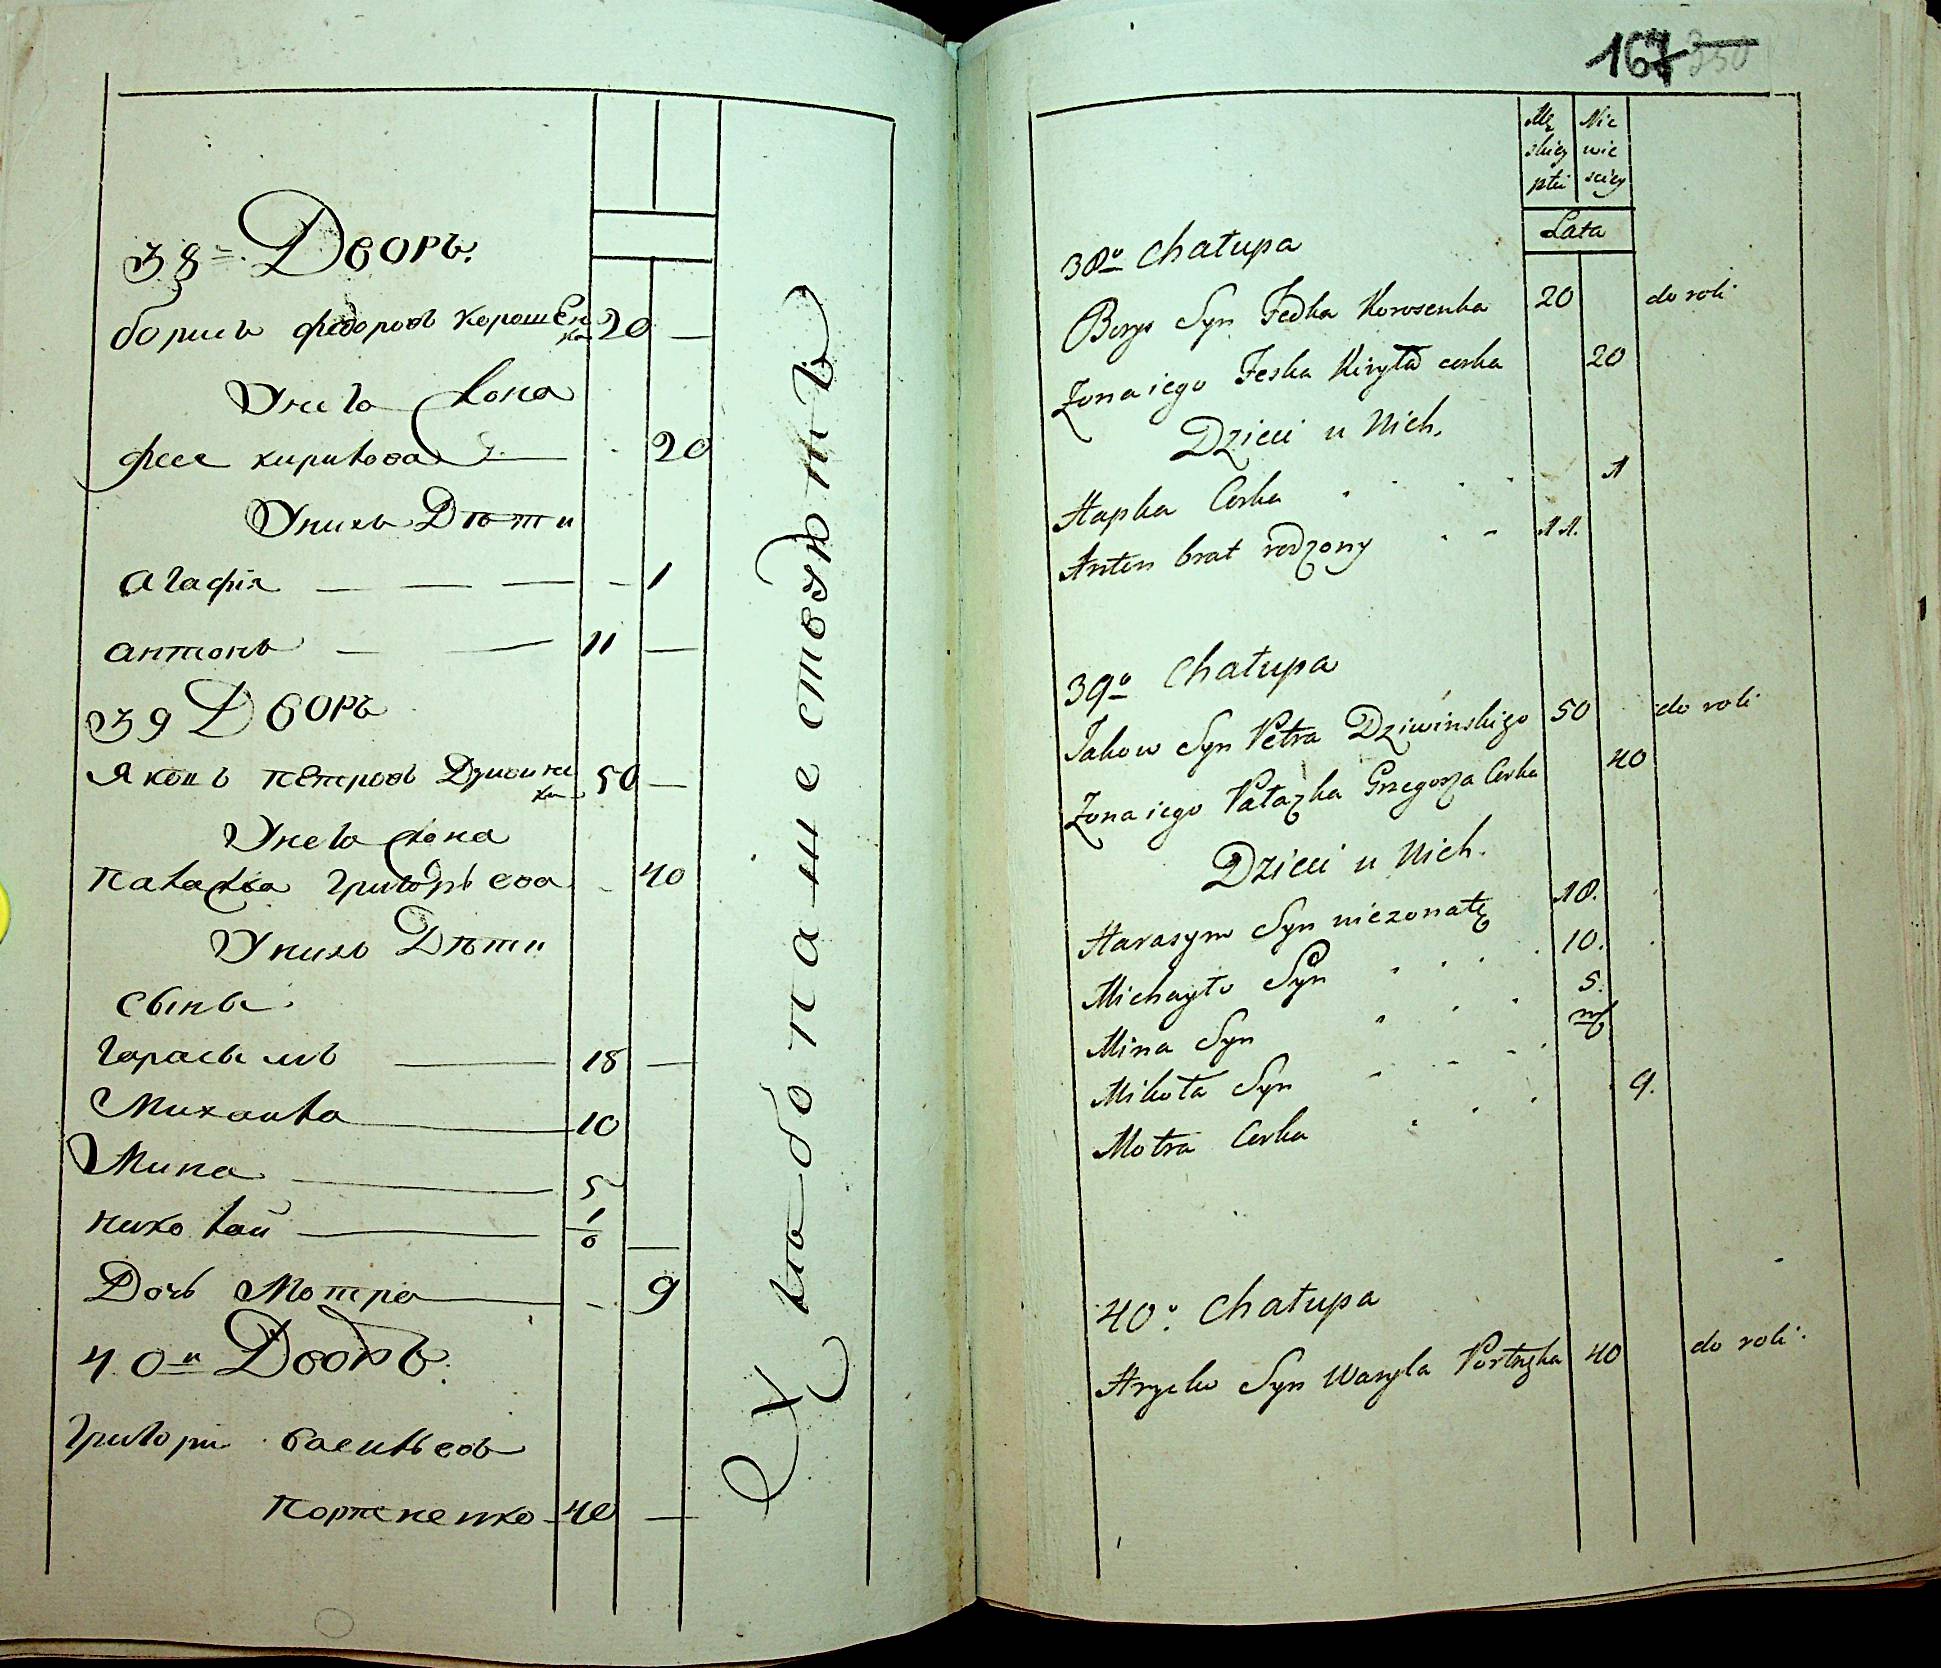 38 = Дворъ.
борисъ федоровъ Корошен
ка 20 —
У него Жона
фeся кирилова 20
У нихъ Дѣти
агафія — — — — 1
антонъ — — 11 —
39 Дворъ
Яковъ петровъ Дзивинс
ки 50 —
У него жона
палажка григорьева 40
У нихъ Дѣти
сыны
гарасымъ 18 —
Михаила 10
Мина 5
николай 1/6 —
Дочь Мотра 9
40 и Дворъ.
григори васильевъ
Портненко 40 —
К хлѣбопашествующъ
167 350
Mę Nie
skiey wie
płci sciey
Lata
38o Chałupa
Borys Syn Fedka Korosenka 20 do roli
Zona iego Feska Kiryła corka 20
Dzieci u Nich.
Hapka Corka 1
Anton brat rodzony 11.
39o Chałupa
Jakow Syn Petra Dziwińskiego 50 do roli
Zona iego Pałazka Grzegorza Corka 40
Dzieci u Nich.
Harasym Syn niezonaty 18.
Michayło Syn 10.
Mina Syn 5.
Mikoła Syn
Motra Corka 9.
40o. Chałupa
Hrycko Syn Wasyla 40 do roli.